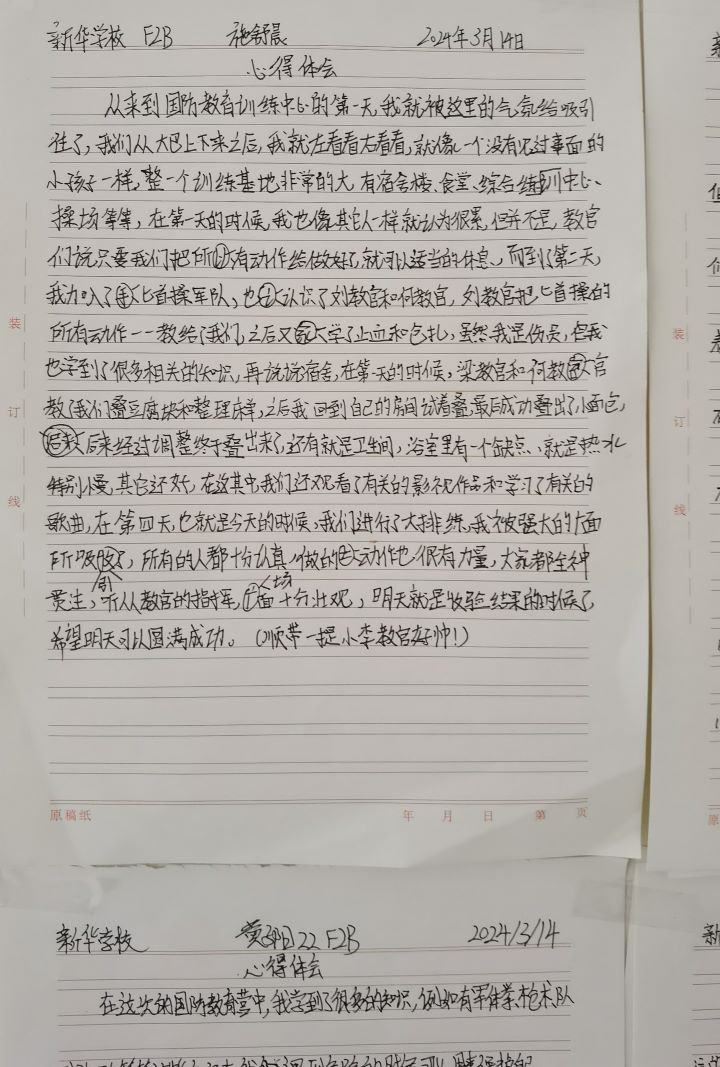 新华学校 F2B 施舒晨 2024年3月14日
心得体会
从来到国防教育训练中心的第一天,我就被这里的气氛给吸引
住了,我们从大巴上下来之后,我就左看看右看看,就像一个没有见过事面的
小孩子一样,整一个训练基地非常的大,有宿舍楼、食堂、综合练训中心、
操场等等,在第一天的时候,我也像其它人一样就认为很累,但并不是,教官
们说只要我们把所有动作给做好了,就可以适当的休息,而到了第二天,
我加入了匕首操军队,也认识了刘教官和何教官,刘教官把匕首操的
所有动作一一教给了我们,之后又学了止血和包扎,虽然我是伤员,但我
也学到了很多相关的知识,再说说宿舍,在第一天的时候,梁教官和何教官
教了我们叠豆腐块和整理床单,之后我回到自己的房间试着叠,最后成功叠出了小面包,
后来经过调整终于叠出来了,还有就是卫生间,浴室里有一个缺点,就是热水
特别慢,其它还好,在这其中,我们还观看了有关的影视作品和学习了有关的
歌曲,在第四天,也就是今天的时候,我们进行了大排练,我被强大的场面
所吸引了,所有的人都十分认真,做的动作也很有力量,大家都全神
贯注,听从教官的指挥,场面十分壮观,明天就是收验结果的时候了,
希望明天可以圆满成功。(顺带一提小李教官好帅!)
装
订
线
原稿纸 年 月 日 第 页
装
订
线
新华学校 22 F2B 2024/3/14
心得体会
在这次的国防教育营中,我学到了很多的知识,例如有军体拳、枪术队